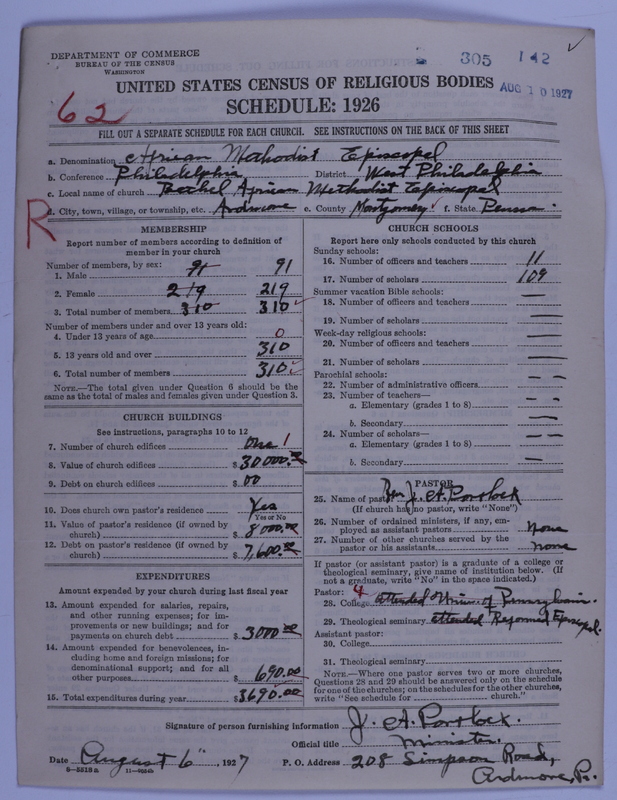 DEPARTMENT OF COMMERCE
BUREAU OF THE CENSUS
WASHINGTON
305 142
AUG 10 1927
62
UNITED STATES CENSUS OF RELIGIOUS BODIES
SCHEDULE: 1926
FILL OUT A SEPARATE SCHEDULE FOR EACH CHURCH. SEE INSTRUCTIONS ON THE BACK OF THIS SHEET
a. Denomination African Methodist Episcopal
b. Conference Philadelphia District West Philadelphia
c. Local name of church Bethel African Methodist Episcopal
R
d. City, town, village, or township, etc. Ardmore e. County Montgomery f. State Penna.
MEMBERSHIP
Report number of members according to definition of
member in your church
Number of members, by sex:
1. Male 91 91
2. Female 219 219
3. Total number of members 310 310
Number of members under and over 13 years old:
4. Under 13 years of age 0
5. 13 years old and over 310
6. Total number of members 310
NOTE.—The total given under Question 6 should be the
same as the total of males and females given under Question 3.
CHURCH BUILDINGS
See instructions, paragraphs 10 to 12
7. Number of church edifices One 1
8. Value of church edifices $ 30000.00
9. Debt on church edifices $ 00
10. Does church own pastor's residence Yes
Yes or No
11. Value of pastor's residence (if owned by
church) $ 8000.00
12. Debt on pastor's residence (if owned by
church) $ 7,600.00
EXPENDITURES
Amount expended by your church during last fiscal year
13. Amount expended for salaries, repairs,
and other running expenses; for im-
provements or new buildings; and for
payments on church debt $ 3000.00
14. Amount expended for benevolences, in-
cluding home and foreign missions; for
denominational support; and for all
other purposes $ 690.00
15. Total expenditures during year $3690.00
CHURCH SCHOOLS
Report here only schools conducted by this church
Sunday schools:
16. Number of officers and teachers 11
17. Number of scholars 109
Summer vacation Bible schools:
18. Number of officers and teachers —
19. Number of scholars —
Week-day religious schools:
20. Number of officers and teachers —
21. Number of scholars —
Parochial schools:
22. Number of administrative officers — -
23. Number of teachers—
a. Elementary (grades 1 to 8) — -
b. Secondary —
24. Number of scholars—
a. Elementary (grades 1 to 8) — —
b. Secondary —
PASTOR
25. Name of pastor J. A. Portlock
(If church has no pastor, write "None")
26. Number of ordained ministers, if any, em-
ployed as assistant pastors None
27. Number of other churches served by the
pastor or his assistants none
If pastor (or assistant pastor) is a graduate of a college or
theological seminary, give name of institution below. (If
not a graduate, write "No" in the space indicated.)
Pastor: 4
28. College attended Univ. of Pennsylvain.
29. Theological seminary attended Reformed Episcopal.
Assistant pastor:
30. College
31. Theological seminary
NOTE.—Where one pastor serves two or more churches,
Questions 28 and 29 should be answered only on the schedule
for one of the churches; on the schedules for the other churches,
write "See schedule for church."
Signature of person furnishing information J. A. Portlock.
Official title Minister.
Date August 6", 1927 P. O. Address 208 Simpson Road,
Ardmore, Pa.